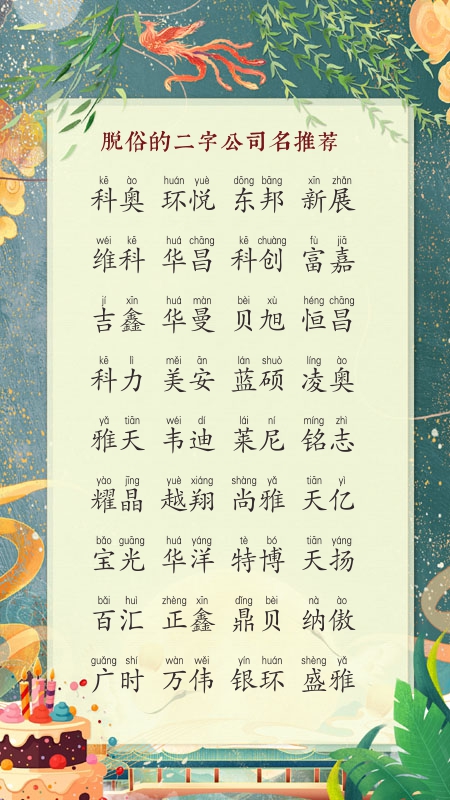 脱俗的二字公司名推荐
kē ào huán yuè dōng bāng xīn zhǎn
科奥 环悦 东邦 新展
wéi kē huá chāng kē chuàng fù jiā
维科 华昌 科创 富嘉
jí xīn huá màn bèi xù héng chāng
吉鑫 华曼 贝旭 恒昌
kē lì měi ān lán shuò líng ào
科力 美安 蓝硕 凌奥
yǎ tiān wéi dí lái ní míng zhì
雅天 韦迪 莱尼 铭志
yào jīng yuè xiáng shàng yǎ tiān yì
耀晶 越翔 尚雅 天亿
bǎo guāng huá yáng tè bó tiān yáng
宝光 华洋 特博 天扬
bǎi huì zhèng xīn dǐng bèi nà ào
百汇 正鑫 鼎贝 纳傲
guǎng shí wàn wěi yín huán shèng yǎ
广时 万伟 银环 盛雅